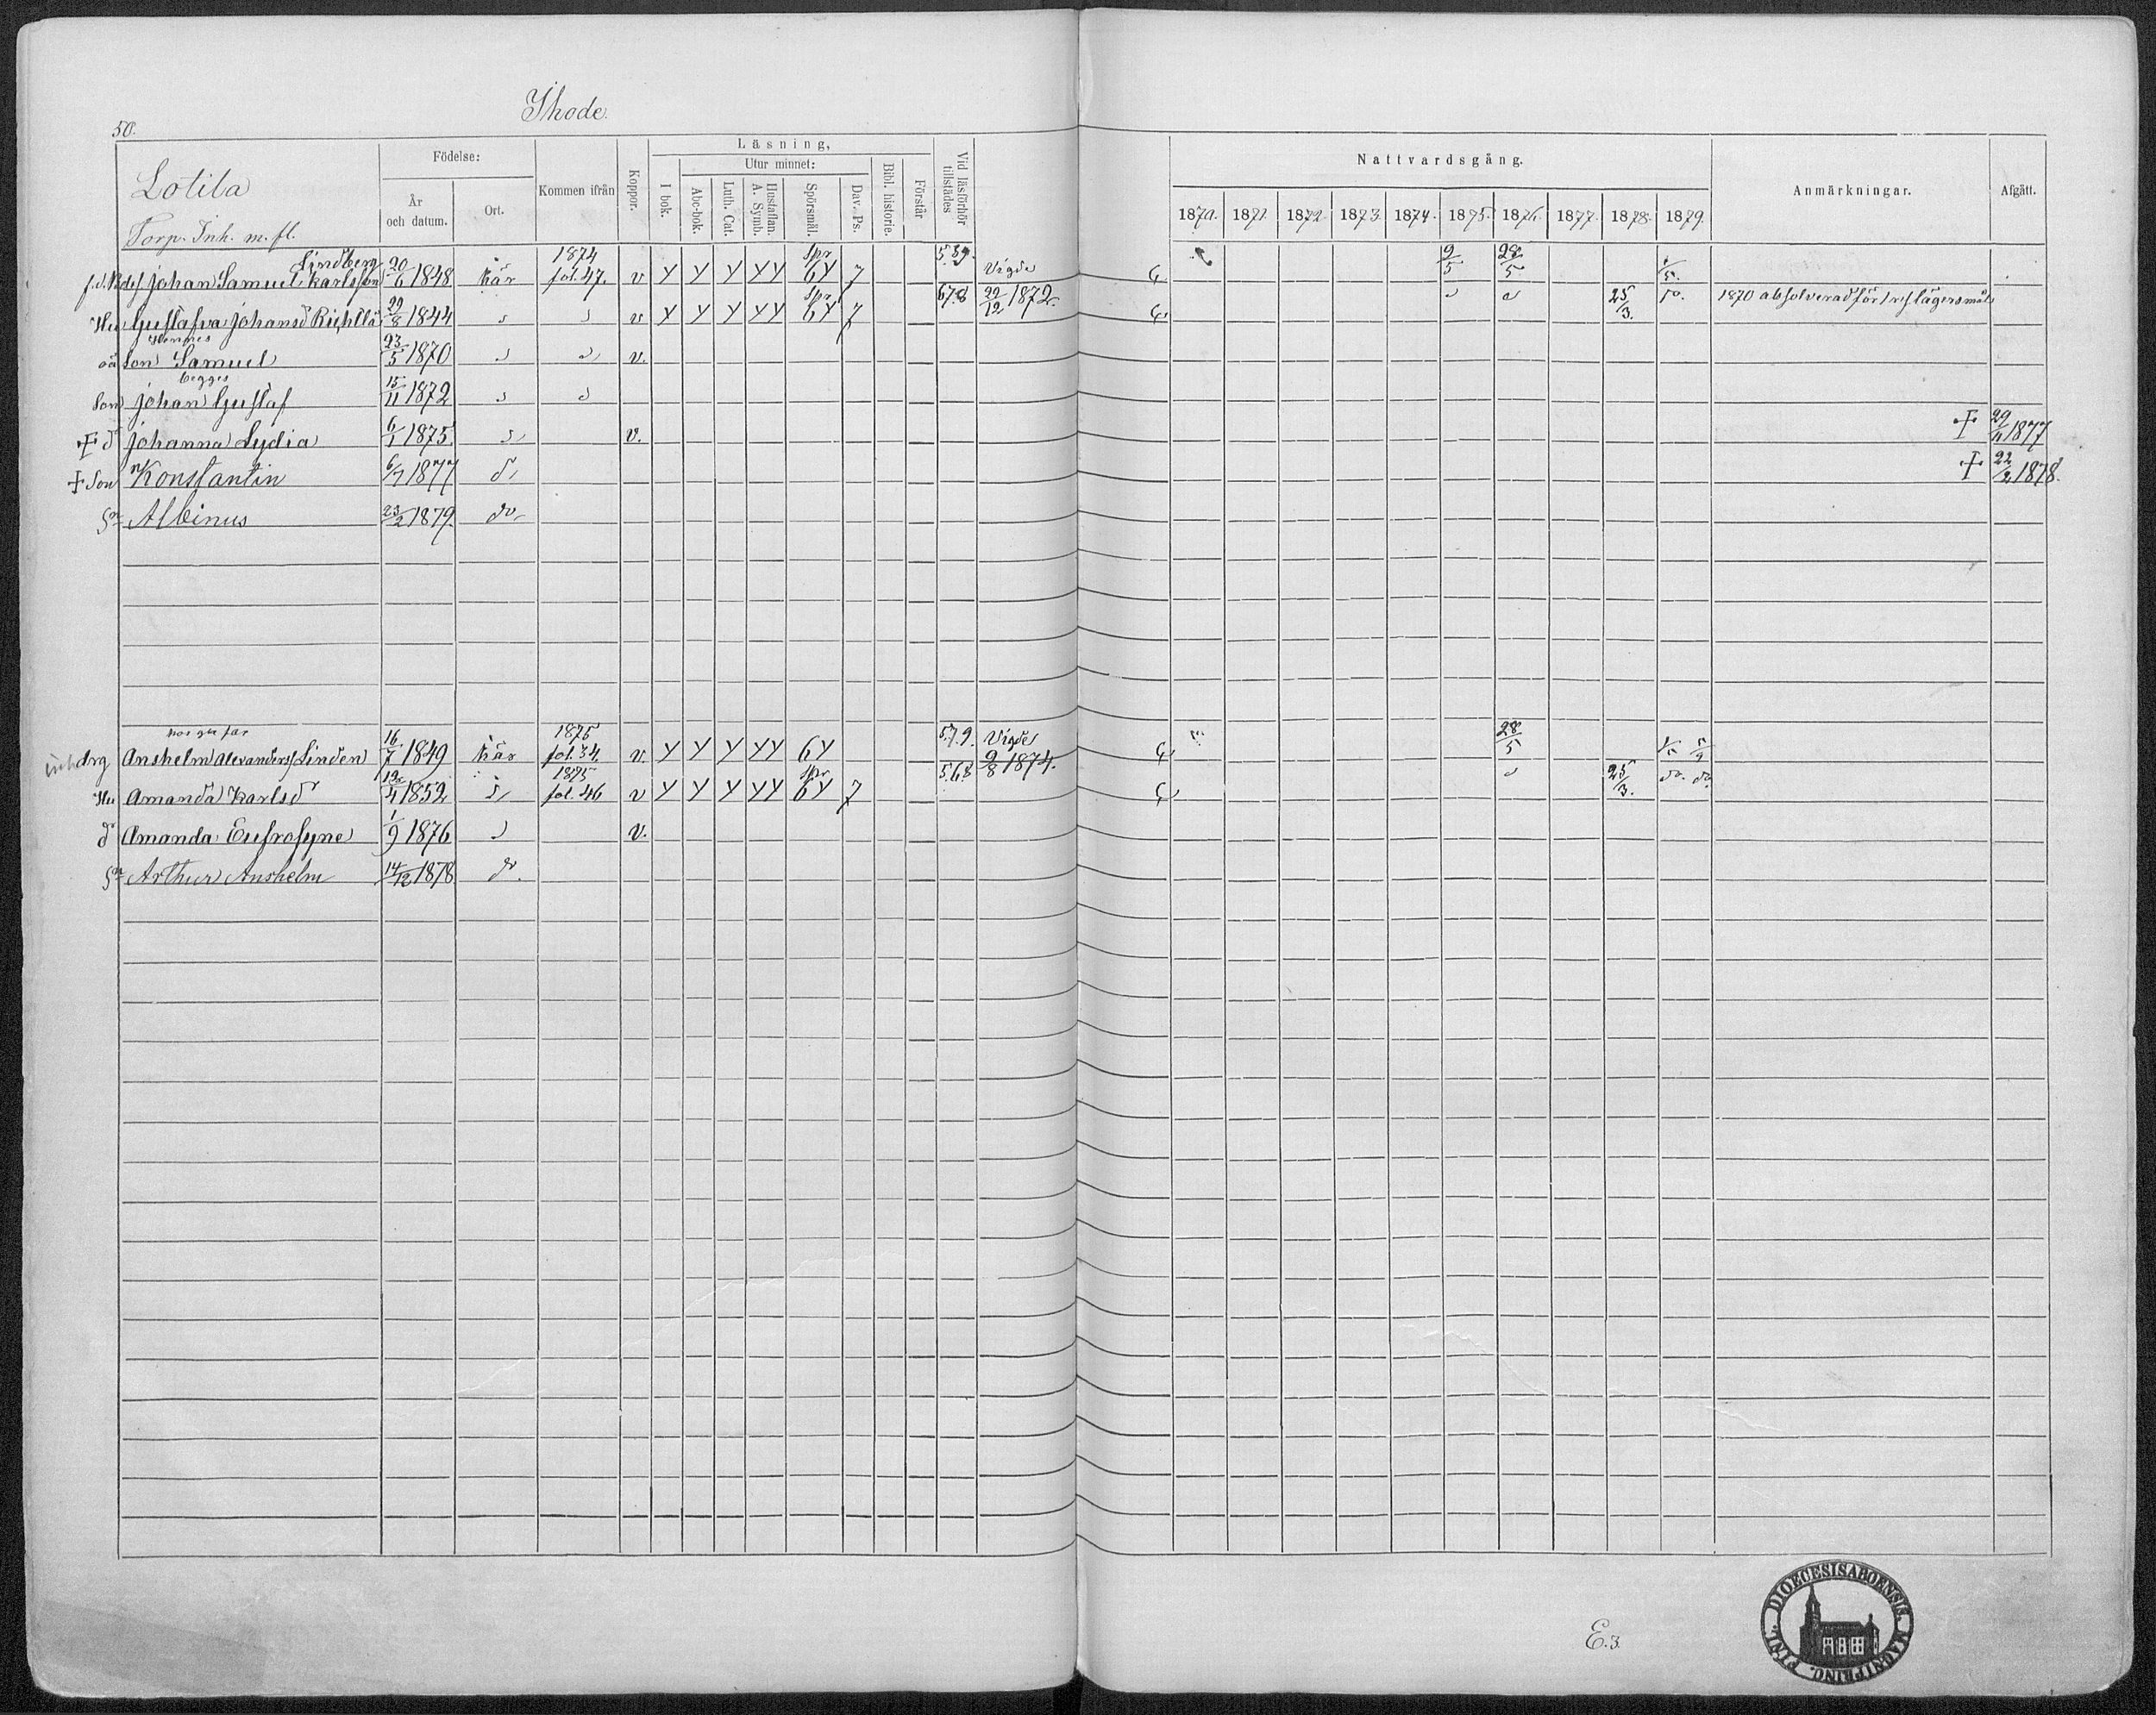 50.
Ihode.
Lotila
Torp. Inh. m. fl.
Födelse:
År och datum.
Ort.
Kommen ifrån
Koppor.
Läsning,
I bok.
Utur minnet:
Abc-bok.
Luth. Cat.
Hustaflan. A. Symb.
Spörsmål.
Dav. Ps.
Bibl. historie.
Förstår
Vid läsförhör tillstädes
Nattvardsgång.
1870. 1871. 1872. 1873. 1874. 1875. 1876. 1877. 1878. 1879.
Anmärkningar.
Afgått.
Lindberg 1874 Spr 5.39.
Johan Samuel Karlsson 20/6 1848 Kär fol. 47. v Y Y Y YY 6Y 7 Vigde 9/5 28/5 1/5.
Hu Gustafva Johansd 29/8 1844 v Y Y Y YY Spr 6Y 7 678 29/12 1872. 25/3. 1870 absolverad för lägersmål
Hennes
oä Son Samuel 23/5 1870 v.
begges
Son Johan Gustaf 15/11 1872
d Johanna Lydia 6/1 1875. v. 1877
Son Konstantin 6/7 1877 22/2 1878.
Sn Albinus 23/2 1879. do
1875 5.7.9. Vigde
Anshelm Alexanders Linden 16/7 1849 Kär fol. 34. v. Y Y Y YY 6Y 9/8 1874. 28/5
1875 Spr 568
Hu Amanda Karlsd 1852 fol. 46 v Y Y Y YY 6Y 7 25/3. do. do.
d Amanda Eufrosyne 1/9 1876 v.
Sn Arthur Anshelm 14/12 1878 do.
E.3.
DIOECESIS ABOENSIS. MAGNI PRINC. FINL.